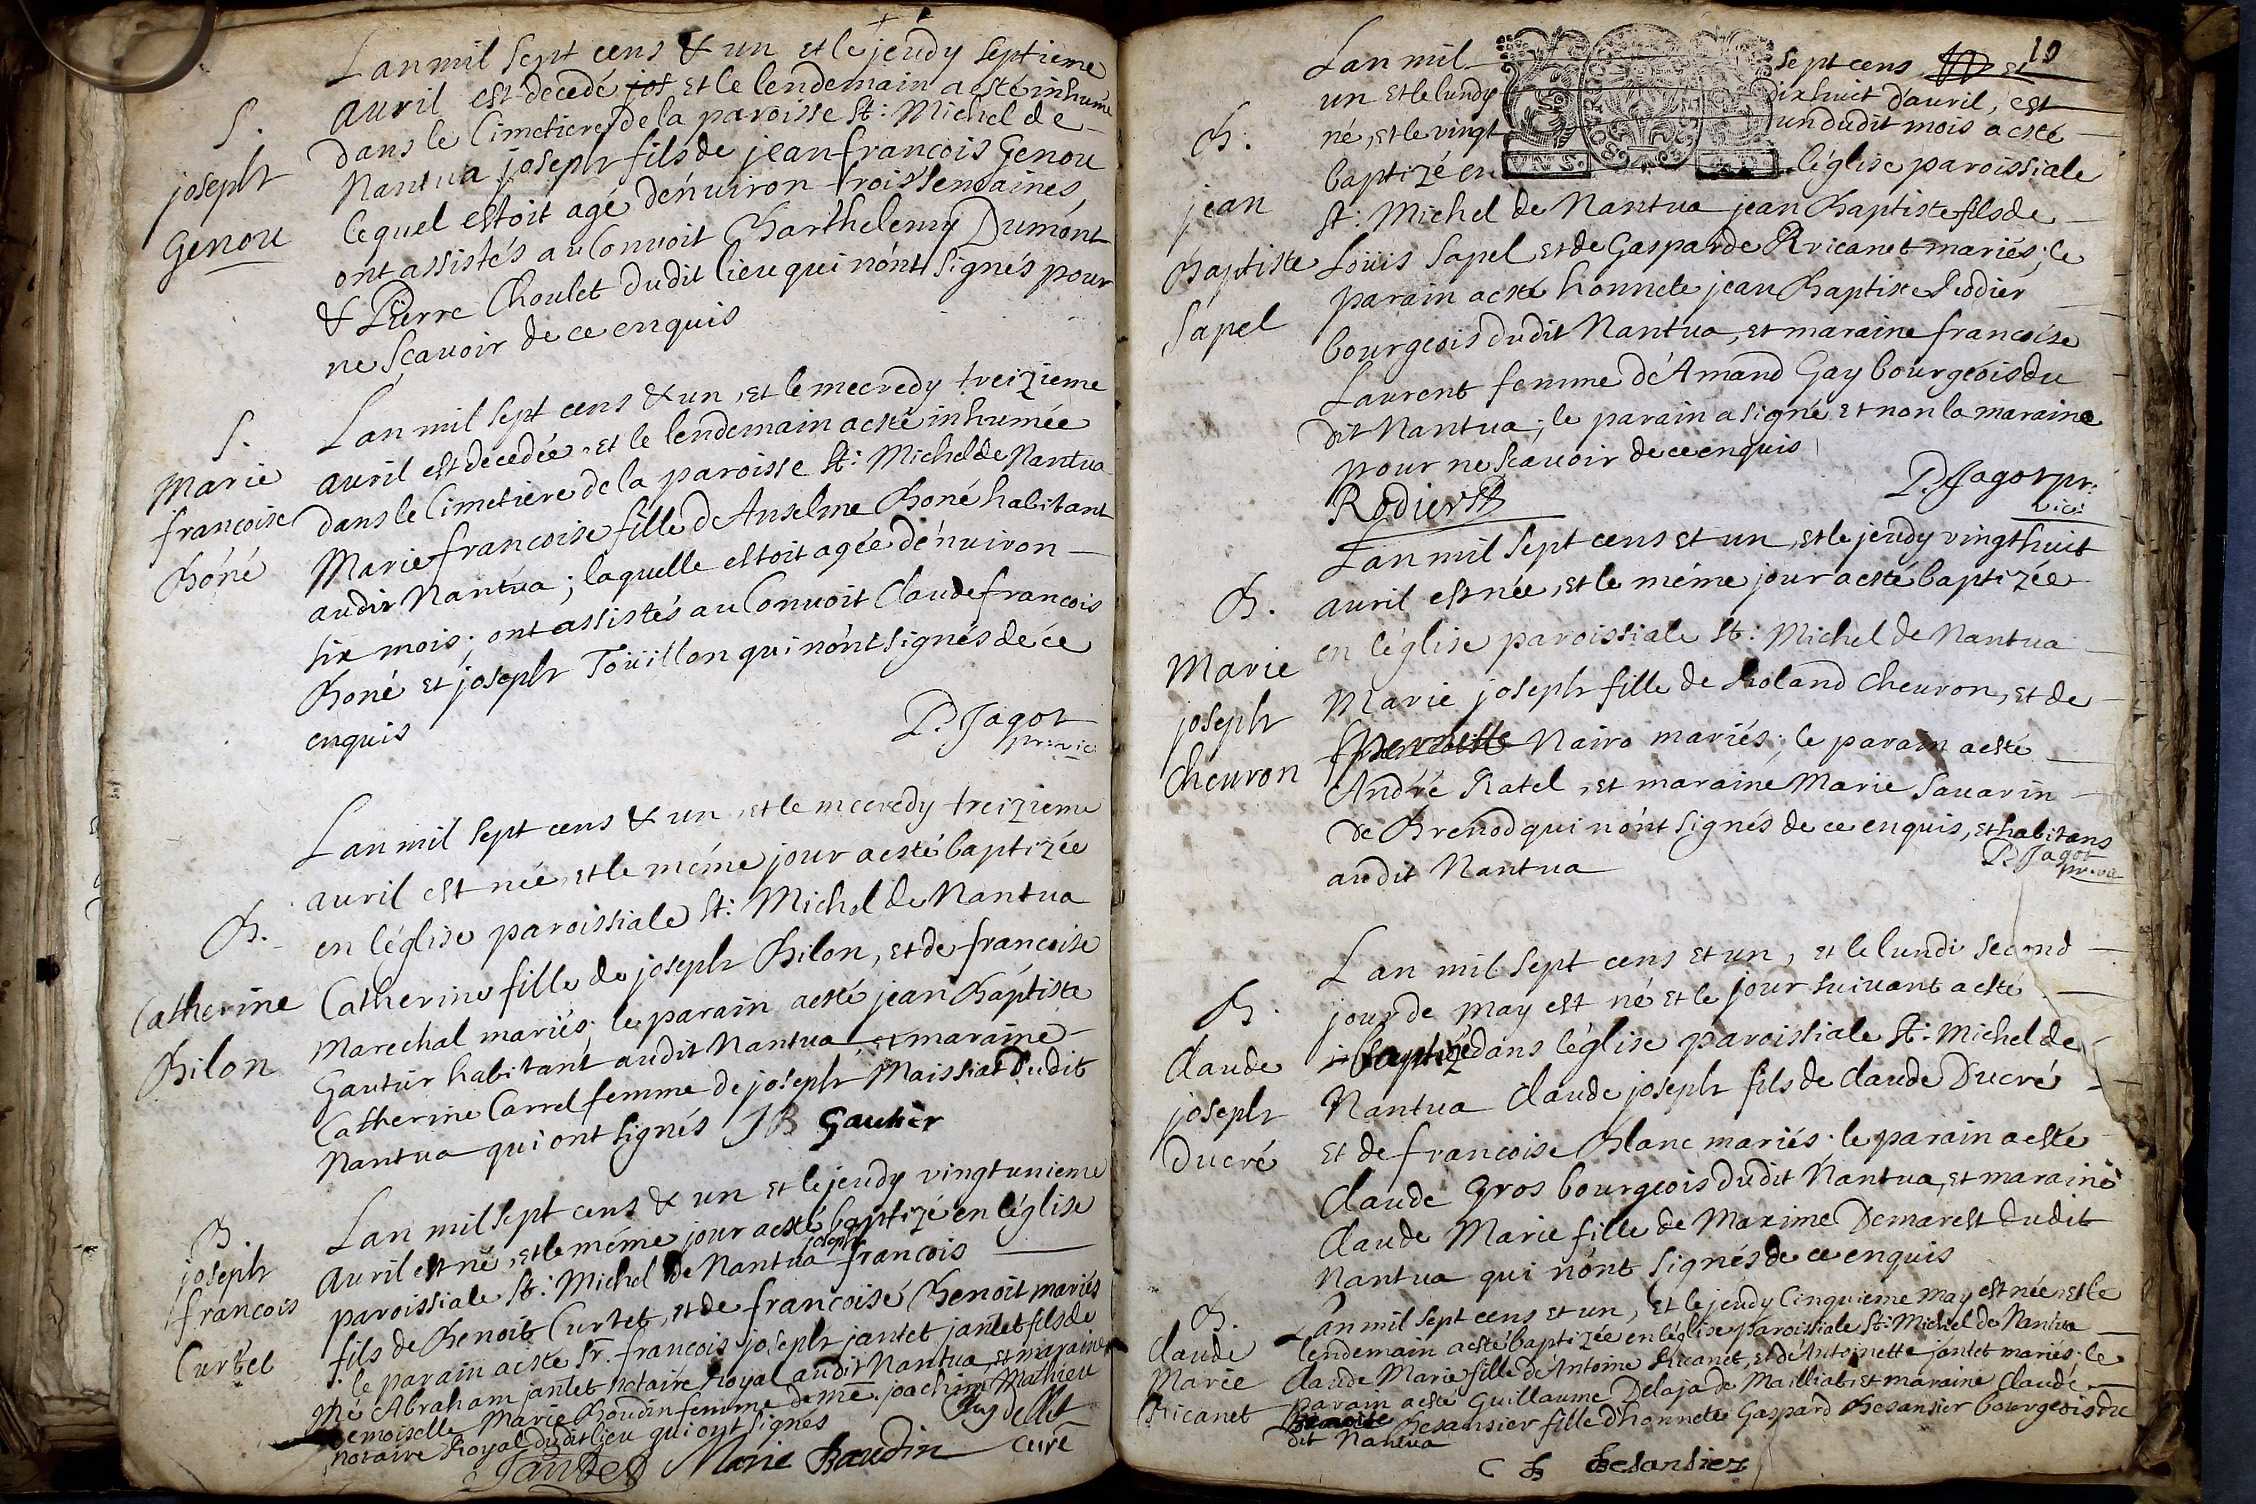 S.
joseph
Genou
Lan mil sept cens & un et le jeudy septieme
auril est decedé jos et le lendemain a esté inhumé
dans le Cimetiere de la paroisse St: Michel de
Nantua joseph fils de jean francois Genou
lequel estoit agé denuiron trois semaines,
ont assistés au Conuoit Barthelemy Dumont
& Pierre Choulet dudit lieu qui nont signés pour
ne scauoir de ce enquis
S.
Marie
francoise
Boné
Lan mil sept cens & un, et le mecredy treizieme
auril est decedée, et le lendemain a esté inhumée
dans le Cimetiere de la paroisse St: Michel de Nantua
Marie francoise fille de Anselme Boné habitant
audit Nantua; laquelle estoit agée denuiron
six mois; ont assistés au Conuoit Claude francois
Boné et joseph Toüillon qui nont signés de ce
enquis
P. Jagot
pr: vic:
B.
Catherine
Bilon
Lan mil sept cens & un et le mecredy treizieme
auril est née, et le méme jour a esté baptizée
en léglise paroissiale St: Michel de Nantua
Catherine fille de joseph Bilon, et de francoise
Marechal mariés; le parain a esté jean Baptiste
Gautier habitant audit Nantua et maraine
Catherine Carrel femme de joseph Maissiat dudit
Nantua qui ont signés J B Gautier
B.
joseph
francois
Curtet
Lan mil sept cens & un et le jeudy vingtunieme
auril est né, et le méme jour a esté baptizé en léglise
paroissiale St: Michel de Nantua joseph francois
fils de Benoit Curtet, et de francoise Benoit mariés
le parain a esté Sr. francois joseph jantet jantet fils de
me Abraham jantet notaire Royal audit Nantua et maraine
demoiselle Marie Boudin femme de me. joachim Mathieu
notaire Royal dudit lieu qui ont signés
Jantet Marie Baudin
curé
10
B.
jean
Baptiste
Sapel
Lan mil sept cens et
un et le lundy dixhuit d'auril, est
né, et le vingt un dudit mois a esté
baptizé en léglise paroissiale
St: Michel de Nantua jean Baptiste fils de
Loüis Sapel et de Gasparde Ricanet mariés; le
parain a esté honnete jean Baptiste Rodier
bourgeois dudit Nantua, et maraine francoise
Laurent femme d'Amand Gay bourgeois du
dit Nantua; le parain a signé et non la maraine
pour ne scauoir de ce enquis
Rodier
P. Jagot pr:
vic:
B.
Marie
joseph
Cheuron
Lan mil sept cens et un, et le jeudy vingthuit
auril est née, et le méme jour a esté baptizée
en léglise paroissiale St: Michel de Nantua
Marie joseph fille de Roland Cheuron, et de
Pernette Nairo mariés; le parain a esté
André Ratel, et maraine Marie Sauarin
de Brenod qui nont signés de ce enquis, et habitans
audit Nantua
P. Jagot
pr: vic
B.
Claude
joseph
Ducré
Lan mil sept cens et un, et le lundi second
jour de may est né et le jour suiuant a esté
baptizé dans léglise paroissiale St: Michel de
Nantua Claude joseph fils de Claude Ducré
et de francoise Blanc mariés; le parain a esté
Claude Gros bourgeois dudit Nantua, et maraine
Claude Marie fille de Maxime Demarest dudit
Nantua qui nont signés de ce enquis
B.
Claude
Marie
Ricanet
Lan mil sept cens et un, et le jeudy Cinquieme may est née et le
lendemain a esté baptizée en léglise paroissiale St: Michel de Nantua
Claude Marie fille de Antoine Ricanet, et de Antoinette jantet mariés; le
parain a esté Guillaume Delaja de Mailliat et maraine Claude
Benoite Besansier fille d'honnete Gaspard Besansier bourgeois du
dit Nantua
C B Besansier